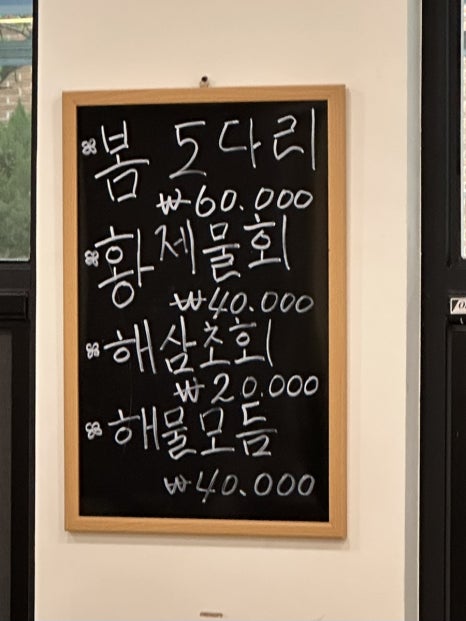 ※봄 도다리
₩60.000
※황제물회
₩40.000
※해삼초회
₩20.000
※해물모듬
₩40.000